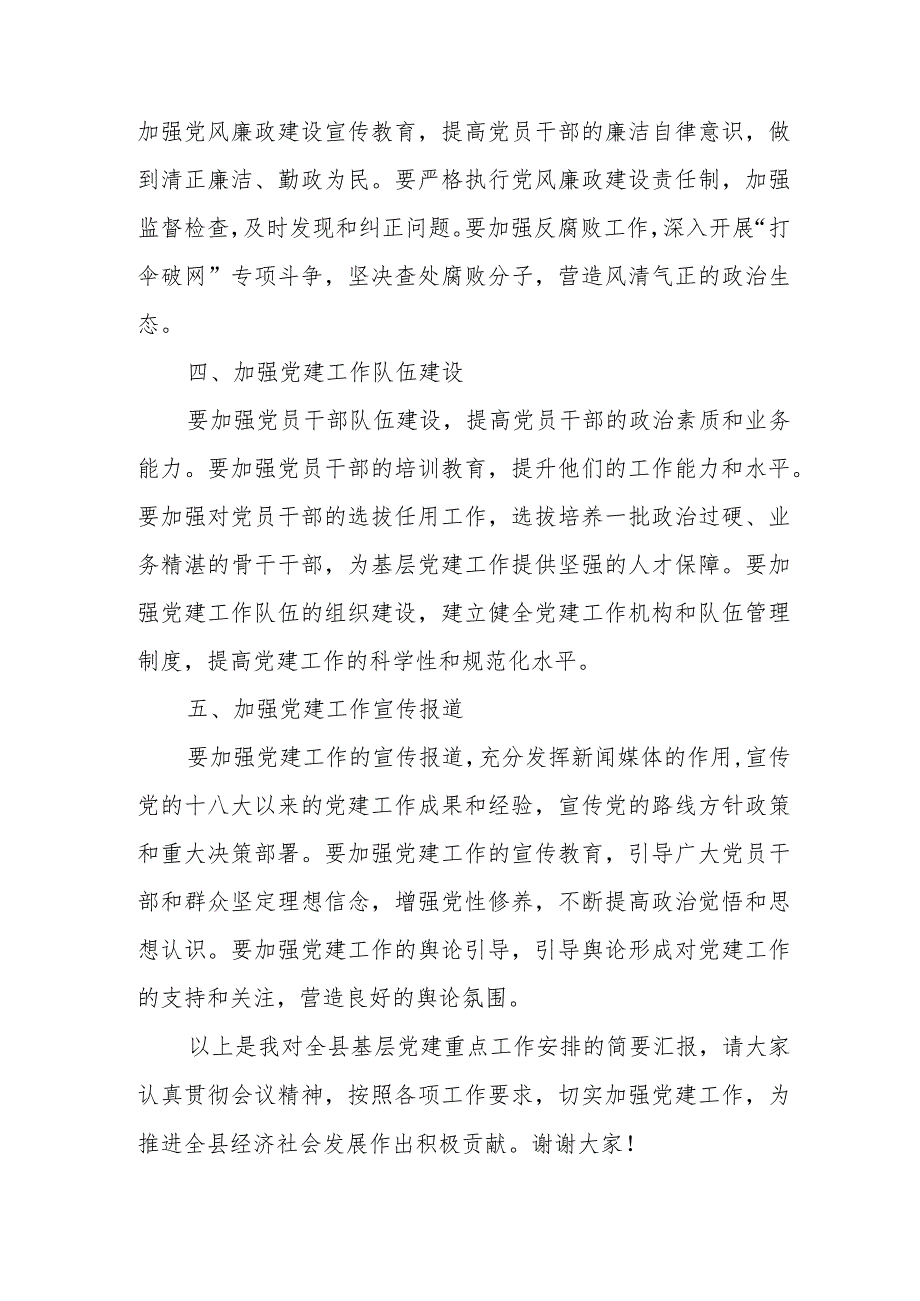 加强党风廉政建设宣传教育，提高党员干部的廉洁自律意识，做
到清正廉洁、勤政为民。要严格执行党风廉政建设责任制，加强
监督检查，及时发现和纠正问题。要加强反腐败工作，深入开展“打
伞破网”专项斗争，坚决查处腐败分子，营造风清气正的政治生
态。
四、加强党建工作队伍建设
要加强党员干部队伍建设，提高党员干部的政治素质和业务
能力。要加强党员干部的培训教育，提升他们的工作能力和水平。
要加强对党员干部的选拔任用工作，选拔培养一批政治过硬、业
务精湛的骨干干部，为基层党建工作提供坚强的人才保障。要加
强党建工作队伍的组织建设，建立健全党建工作机构和队伍管理
制度，提高党建工作的科学性和规范化水平。
五、加强党建工作宣传报道
要加强党建工作的宣传报道，充分发挥新闻媒体的作用,宣传
党的十八大以来的党建工作成果和经验，宣传党的路线方针政策
和重大决策部署。要加强党建工作的宣传教育，引导广大党员干
部和群众坚定理想信念，增强党性修养，不断提高政治觉悟和思
想认识。要加强党建工作的舆论引导，引导舆论形成对党建工作
的支持和关注，营造良好的舆论氛围。
以上是我对全县基层党建重点工作安排的简要汇报，请大家
认真贯彻会议精神，按照各项工作要求，切实加强党建工作，为
推进全县经济社会发展作出积极贡献。谢谢大家！